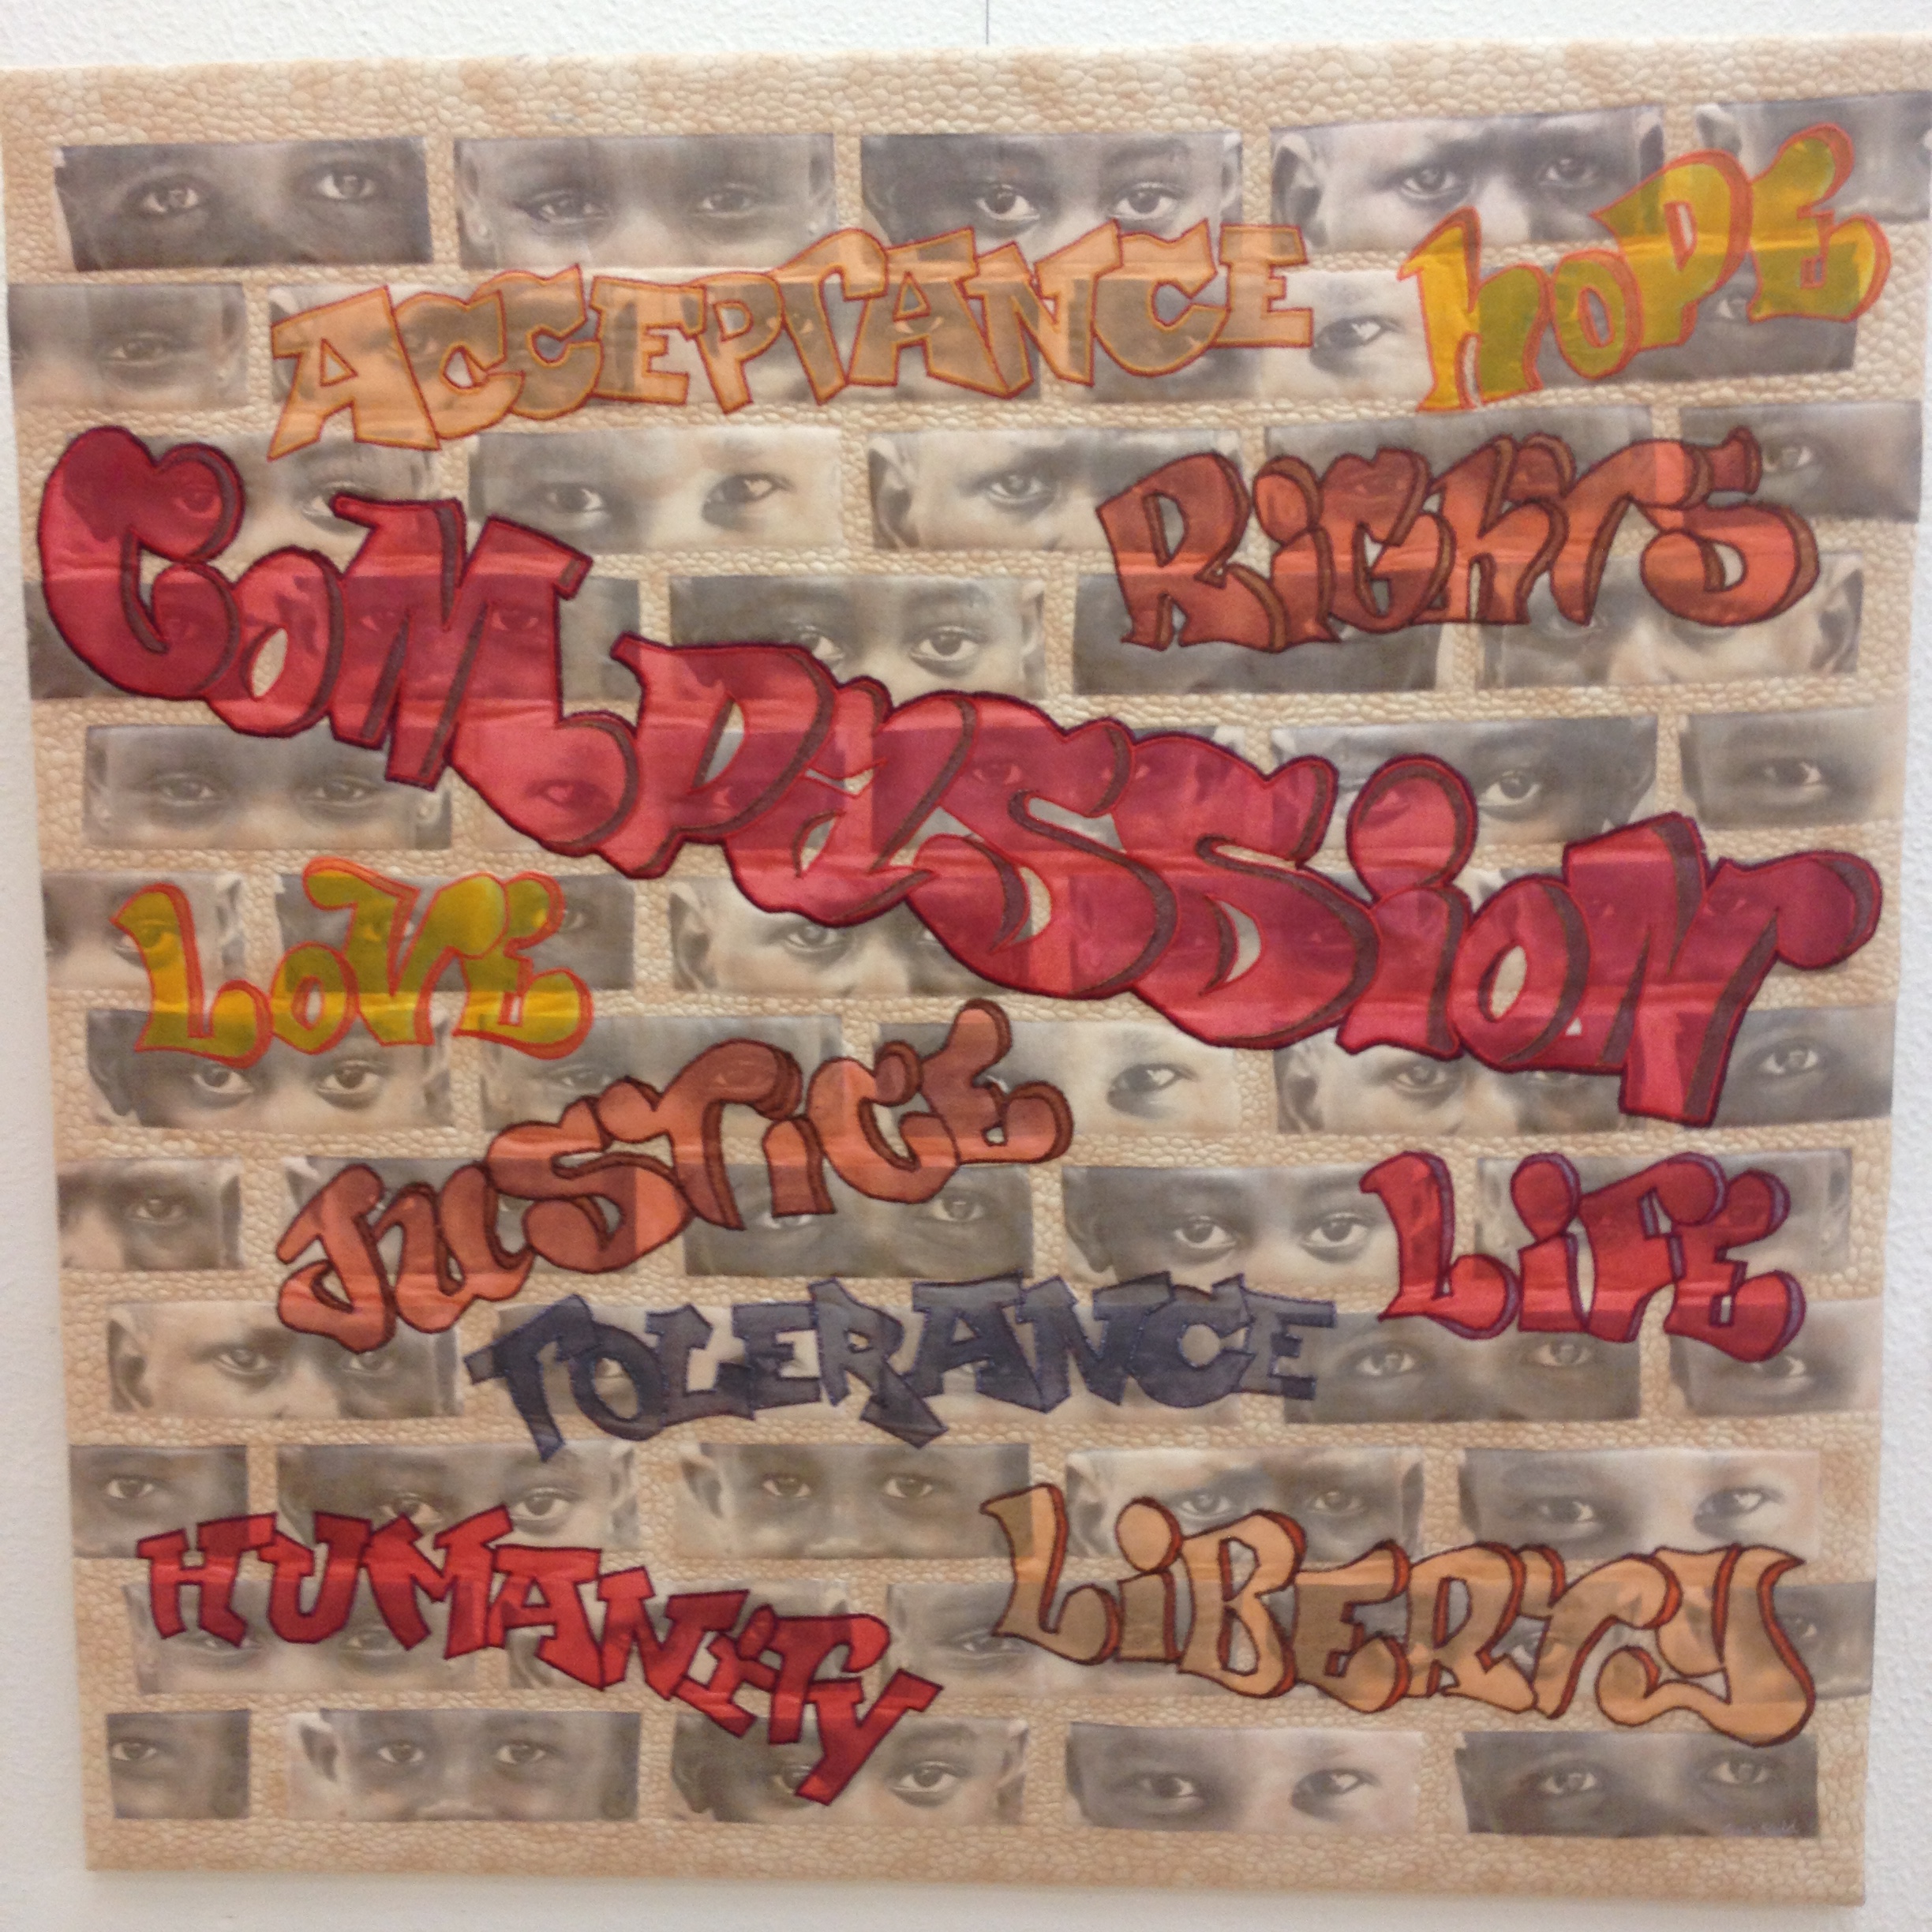 ACCEPTANCE
HOPE
RiGHTS
COMPaSSiON
LOVE
JuSTiCE
LiFE
TOLERANCE
HUMANiTY
LiBERTY